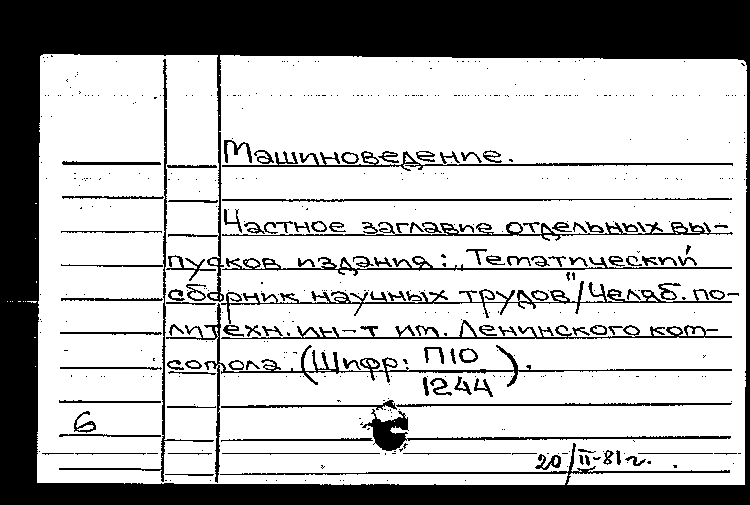 Машиноведение.
Частное заглавие отдельных вы-
пусков издания: „Тематический
сборник научных трудов"/Челяб. по-
литехн. ин-т им. Ленинского ком-
сомола. (Шифр: П10
1244).
6
20/II-81 г.